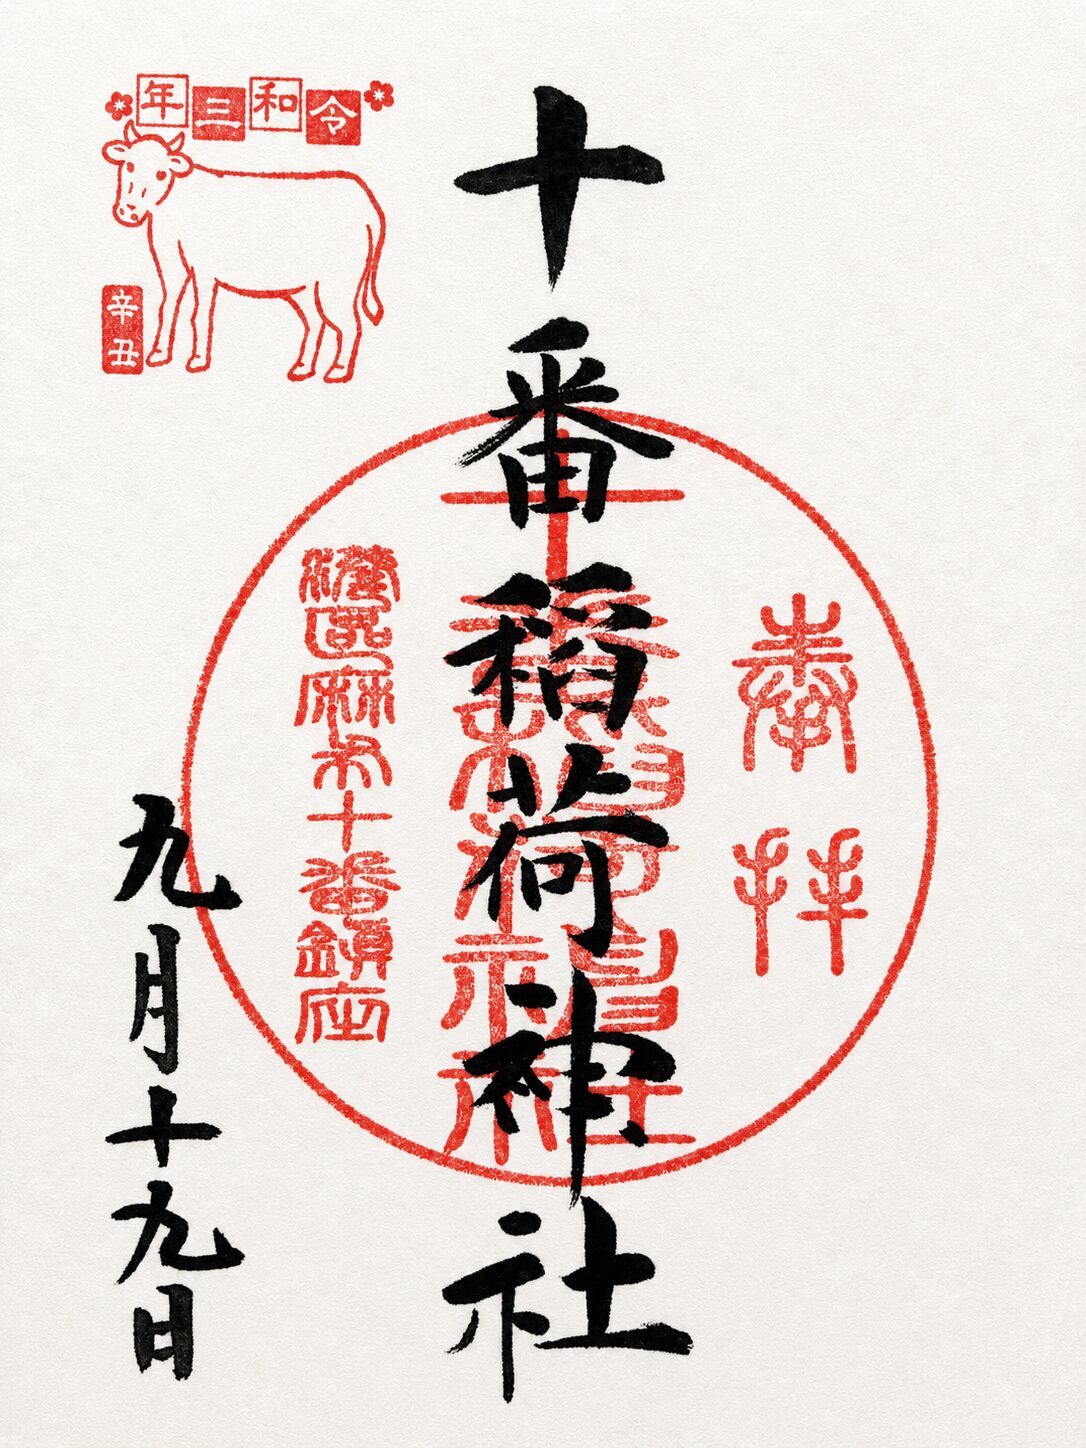 奉拝
十番稲荷神社
港区麻布十番鎮座
令和三年
辛丑
九月十九日